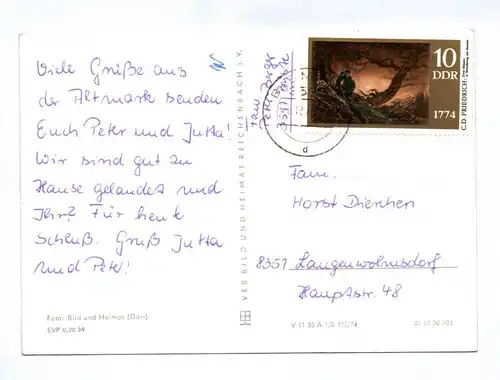 Viele Grüße aus
der Altmark senden
Euch Peter und Jutta!
Wir sind gut zu
Hause gelandet und
Ihr? Für heut
Schluß. Gruß Jutta
und Peter!
Foto: Bild und Heimat (Darr)
EVP 0,20 M
VEB BILD UND HEIMAT REICHENBACH i. V.
Fam.
Peter
3591
10
DDR
1774
C. D. FRIEDRICH
d
Fam.
Horst
8351 Langenwolmsdorf
Hauptstr. 48
V 11 50 A 1/B
01 07